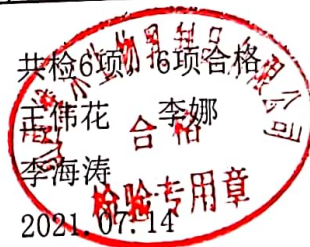 共检6项，6项合格
王伟花 李娜
李海涛
2021.07.14
合格
检验专用章